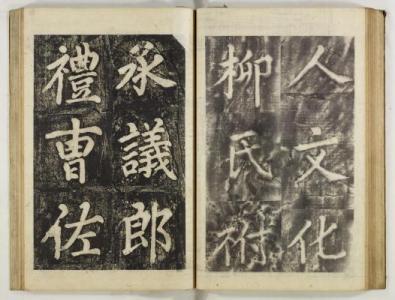 人文化
柳氏祔
承議郎
禮曺佐